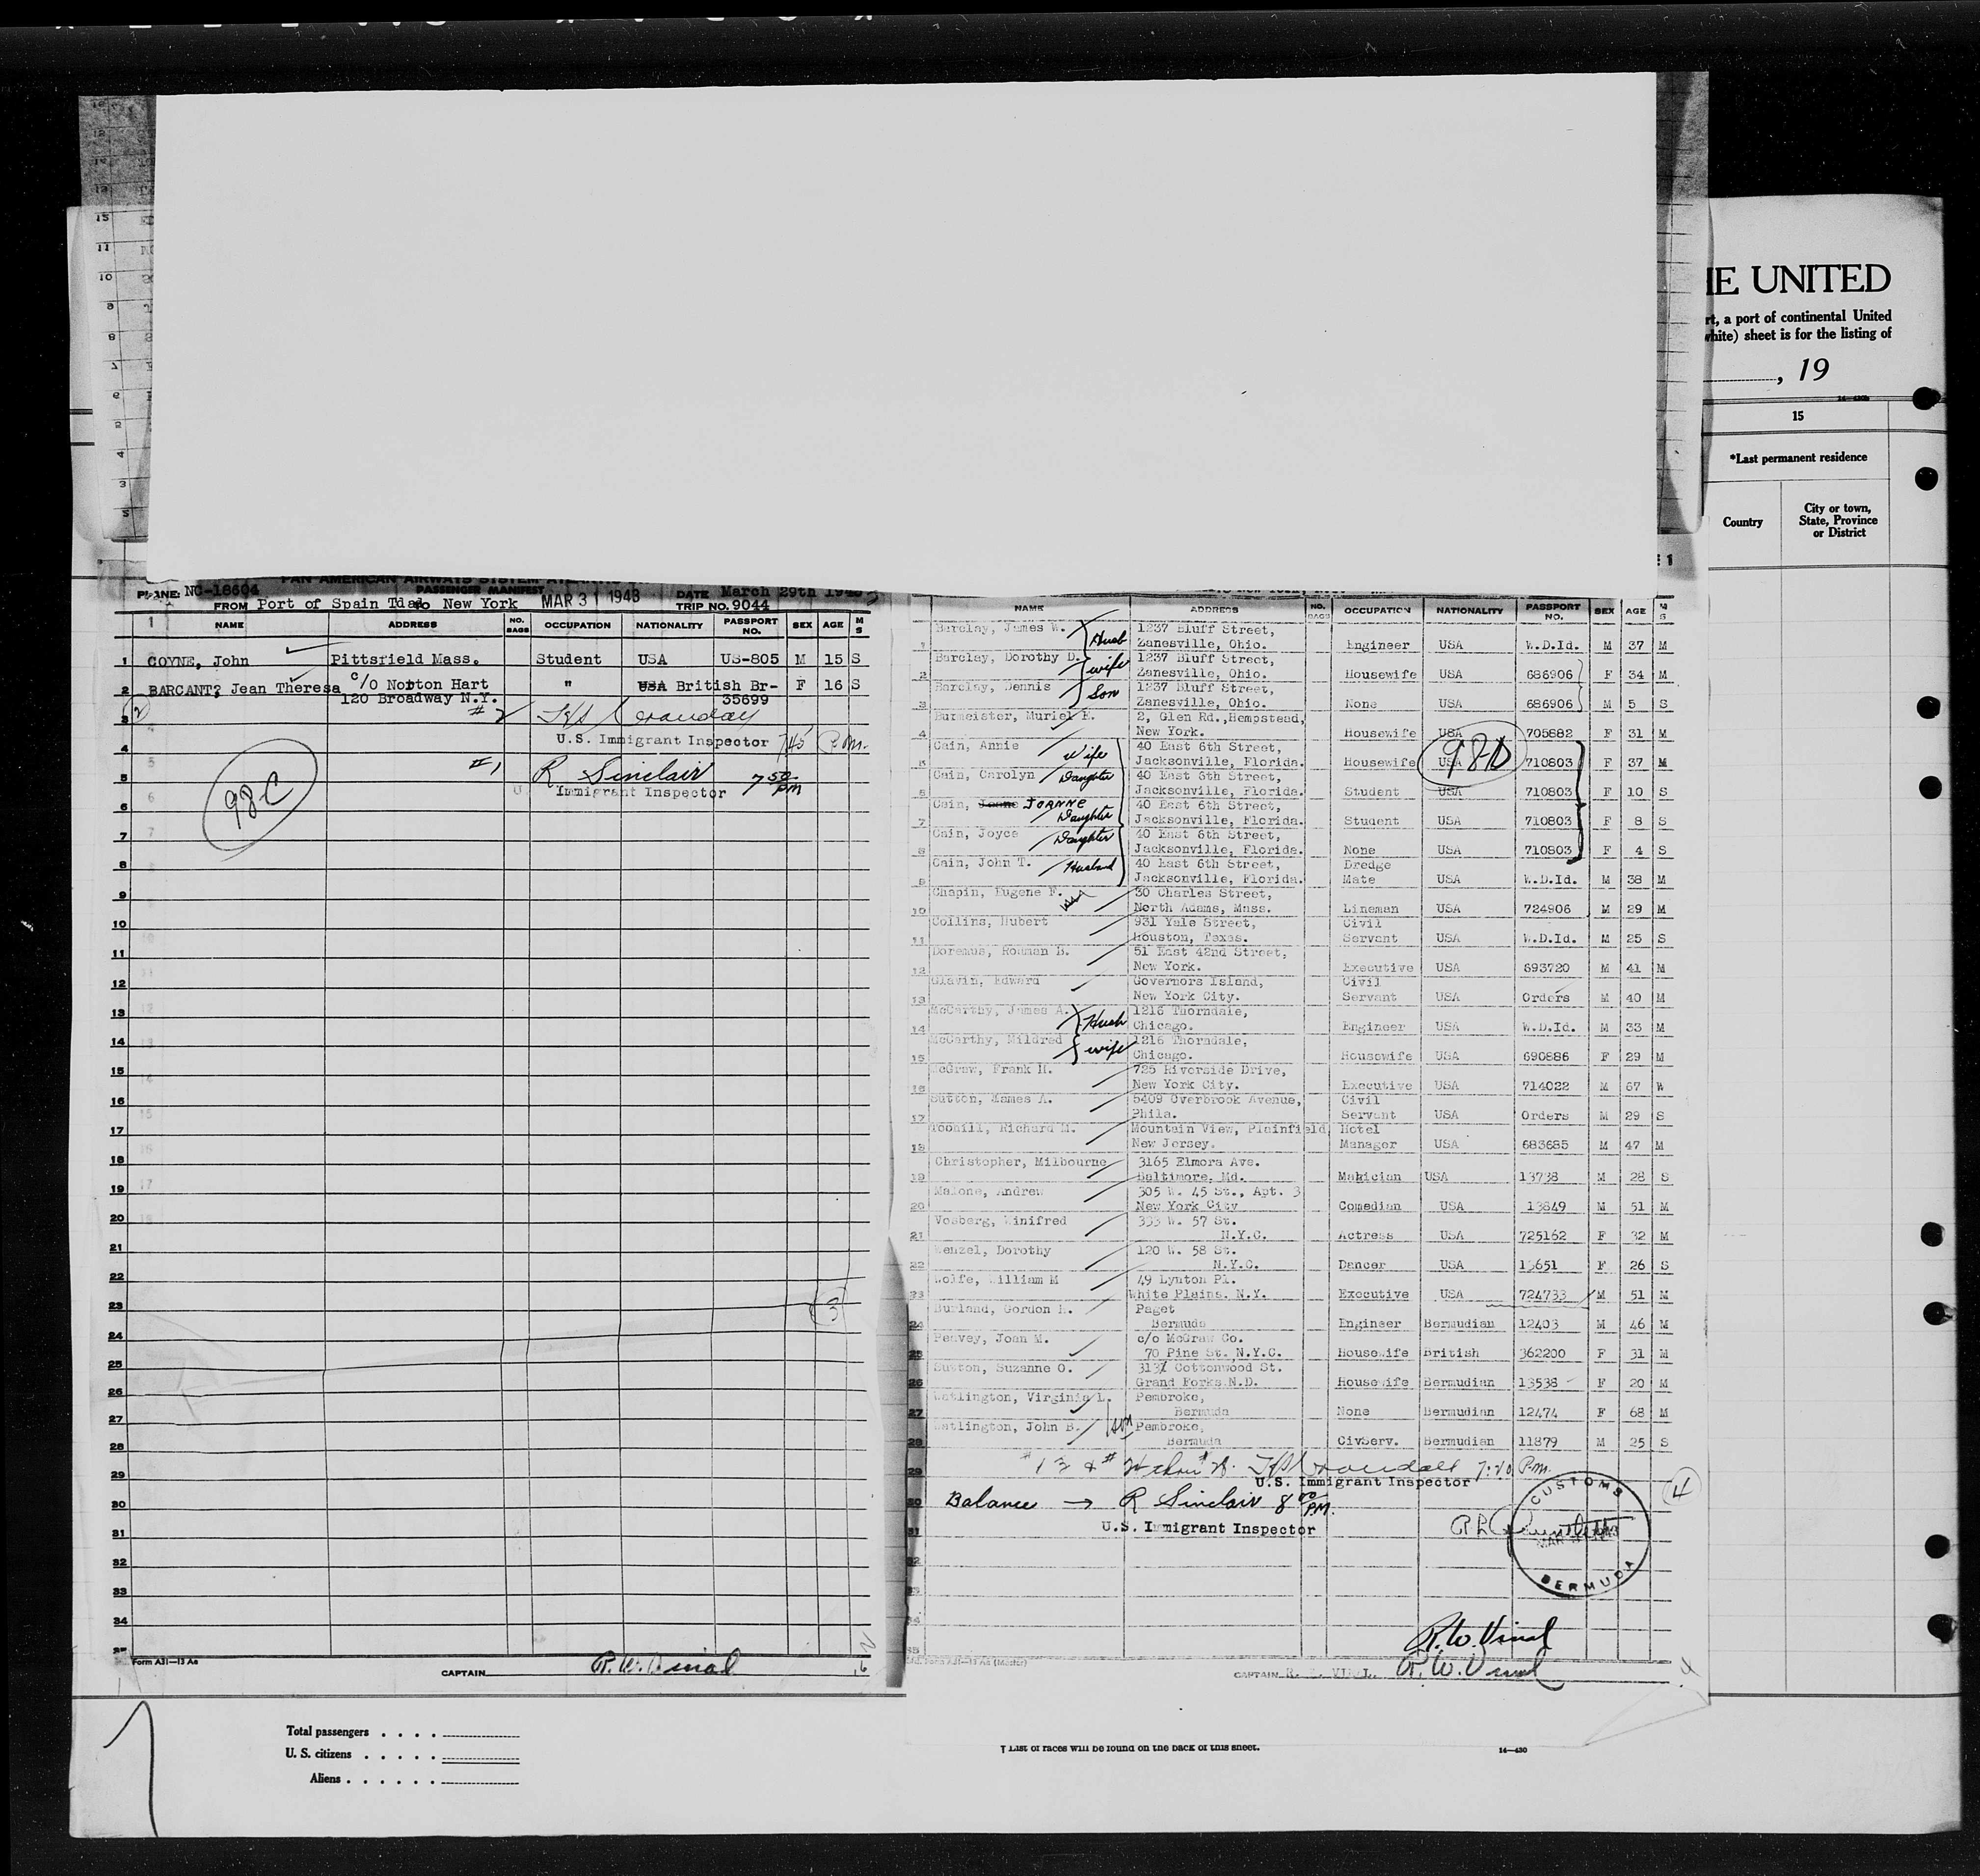 HE UNITED
rt, a port of continental United
white) sheet is for the listing of
, 19
15
*Last permanent residence
Country
City or town, State, Province or District
PAN AMERICAN AIRWAYS SYSTEM
PLANE: NC-18604 PASSENGER MANIFEST DATE March 29th 1943
FROM Port of Spain Tdad to New York MAR 31 1943 TRIP NO. 9044
NAME ADDRESS NO. BAGS OCCUPATION NATIONALITY PASSPORT NO. SEX AGE M S
1 COYNE, John Pittsfield Mass. Student USA US-805 M 15 S
2 BARCANT, Jean Theresa c/o Norton Hart " USA British Br- F 16 S
120 Broadway N.Y. 35699
3 #2
U.S. Immigrant Inspector 745 P.m.
4
#1 R Sinclair 7 50 pm
5
Immigrant Inspector
98-C
6
7
8
9
10
11
12
13
14
15
16
17
18
19
20
21
22
23 3
24
25
26
27
28
29
30
31
32
33
34
Form A31-13 Aa
CAPTAIN R.W. Vinal
NAME ADDRESS NO. BAGS OCCUPATION NATIONALITY PASSPORT NO. SEX AGE M S
Barclay, James W. Husb 1237 Bluff Street,
1 Zanesville, Ohio. Engineer USA W.D.Id. M 37 M
Barclay, Dorothy D. wife 1237 Bluff Street,
2 Zanesville, Ohio. Housewife USA 686906 F 34 M
Barclay, Dennis Son 1237 Bluff Street,
3 Zanesville, Ohio. None USA 686906 M 5 S
Burmeister, Muriel E. 2, Glen Rd., Hempstead,
4 New York. Housewife USA 705682 F 31 M
Cain, Annie Wife 40 East 6th Street,
5 Jacksonville, Florida. Housewife USA 710803 F 37 M
98D
Cain, Carolyn Daughter 40 East 6th Street,
6 Jacksonville, Florida. Student USA 710803 F 10 S
Cain, JOANNE Daughter 40 East 6th Street,
7 Jacksonville, Florida. Student USA 710803 F 8 S
Cain, Joyce Daughter 40 East 6th Street,
8 Jacksonville, Florida. None USA 710803 F 4 S
Cain, John T. Husband 40 East 6th Street, Dredge
9 Jacksonville, Florida. Mate USA W.D.Id. M 38 M
Chapin, Eugene F. 30 Charles Street,
10 North Adams, Mass. Lineman USA 724906 M 29 M
Collins, Hubert 931 Yale Street, Civil
11 Houston, Texas. Servant USA W.D.Id. M 25 S
Doremus, Rodman B. 51 East 42nd Street,
12 New York. Executive USA 693720 M 41 M
Glavin, Edward Governors Island, Civil
13 New York City. Servant USA Orders M 40 M
McCarthy, James A. Husb 1216 Thorndale,
14 Chicago. Engineer USA W.D.Id. M 33 M
McCarthy, Mildred wife 1216 Thorndale,
15 Chicago. Housewife USA 690886 F 29 M
McGraw, Frank H. 725 Riverside Drive,
16 New York City. Executive USA 714022 M 67 W
Sutton, Mames A. 5409 Overbrook Avenue, Civil
17 Phila. Servant USA Orders M 29 S
Toohill, Richard M. Mountain View, Plainfield, Hotel
18 New Jersey. Manager USA 683685 M 47 M
Christopher, Milbourne 3165 Elmora Ave.
19 Baltimore, Md. Magician USA 13738 M 28 S
Malone, Andrew 305 W. 45 St., Apt. 3
20 New York City Comedian USA 13849 M 51 M
Vosberg, Winifred 353 W. 57 St.
21 N.Y.C. Actress USA 725162 F 32 M
Wenzel, Dorothy 120 W. 58 St.
22 N.Y.C. Dancer USA 13651 F 26 S
Wolfe, William M 49 Lynton Pl.
23 White Plains. N.Y. Executive USA 724733 M 51 M
Burland, Gordon H. Paget
24 Bermuda Engineer Bermudian 12403 M 46 M
Peavey, Joan M. c/o McGraw Co.
25 70 Pine St. N.Y.C. Housewife British 362200 F 31 M
Sutton, Suzanne O. 313½ Cottonwood St.
26 Grand Forks N.D. Housewife Bermudian 13538 F 20 M
Watlington, Virginia L. Pembroke,
27 Bermuda None Bermudian 12474 F 68 M
Watlington, John B. son Pembroke,
28 Bermuda CivServ. Bermudian 11879 M 25 S
29 U.S. Immigrant Inspector P.m.
30 Balance → R Sinclair 8 00 PM.
31 U.S. Immigrant Inspector
CUSTOMS
BERMUDA
4
32
33
34
R.W. Vinal
Form A31-13 Aa (Master)
CAPTAIN R. W. VINAL. R.W. Vinal
Total passengers
U. S. citizens
Aliens
† List of races will be found on the back of this sheet.
14-430